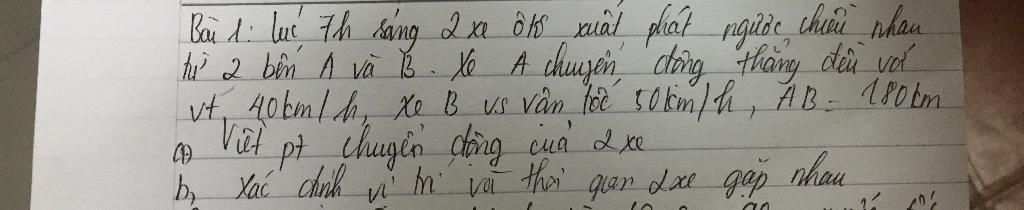 Bài 1: lúc 7h sáng 2 xe ôtô xuất phát ngược chiều nhau
từ 2 bến A và B. Xe A chuyển động thẳng đều với
vt 40km/h, xe B vs vân tốc 50km/h, AB = 180km
a) Viết pt chuyển động của 2 xe
b, Xác định vị trí và thời gian 2xe gặp nhau